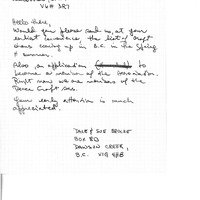 V6H 3R7
Hello there,
Would you please send us, at your
earliest convenience, the list of craft
fairs coming up in B.C. in the Spring
& summer.
Also an application to
become a member of the association.
Right now we are members of the
Peace Craft ass.
Your early attention is much
appreciated.
DALE & SUE
BOX 
DAWSON CREEK,
B.C. V1G